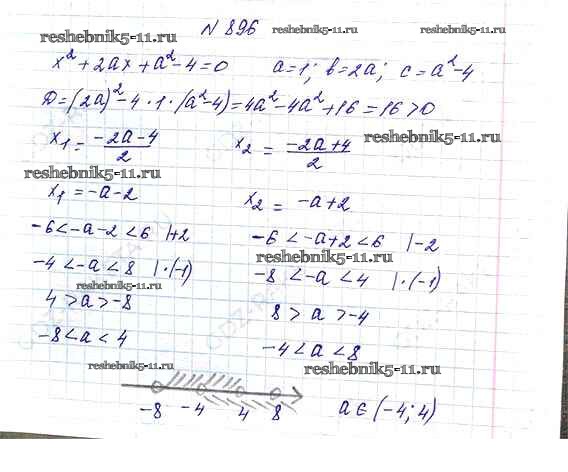 N 896
reshebnik5-11.ru reshebnik5-11.ru
x²+2ax+a²-4=0 a=1; b=2a; c=a²-4
D=(2a)²-4·1·(a²-4)=4a²-4a²+16=16>0
x₁=(-2a-4)/2 x₂=(-2a+4)/2 reshebnik5-11.ru
reshebnik5-11.ru
x₁=-a-2 x₂=-a+2
-6<-a-2<6 |+2 -6<-a+2<6 |-2
reshebnik5-11.ru
-4<-a<8 |·(-1) -8<-a<4 |·(-1)
reshebnik5-11.ru
4>a>-8 8>a>-4
-8<a<4 -4<a<8
reshebnik5-11.ru reshebnik5-11.ru
-8 -4 4 8 a∈(-4;4)